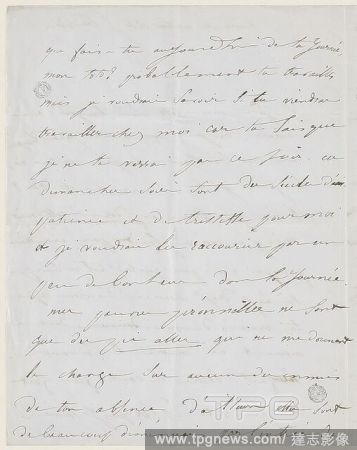 que fais-tu aujourd'hui de ta journée
mon toto probablement tu travailles
mais je voudrais savoir si tu viendras
travailler chez moi car tu sais que
je ne te verrai pas ce soir. ces
dimanches soir sont des siècles d'im
patience et de tristesse pour moi
et je voudrais les raccourcir par un
peu de bonheur dans la journée.
mes pauvres péronnelles ne sont
que des pis aller qui ne me donnent
le change sur aucun des ennuis
de ton absence
de beaucoup
TPG
www.tpgnews.com/達志影像